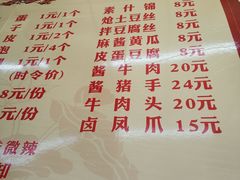 素什锦 8元
蛋 1元/1个
炝土豆丝 8元
子 1元/1个
拌豆腐丝 8元
皮 1元/2个
麻酱黄瓜 8元
鲍 1元/4个
皮蛋豆腐 8元
(时令价)
酱牛肉 20元
8元/份
酱猪手 24元
元/份
牛肉头 20元
卤凤爪 15元
微辣